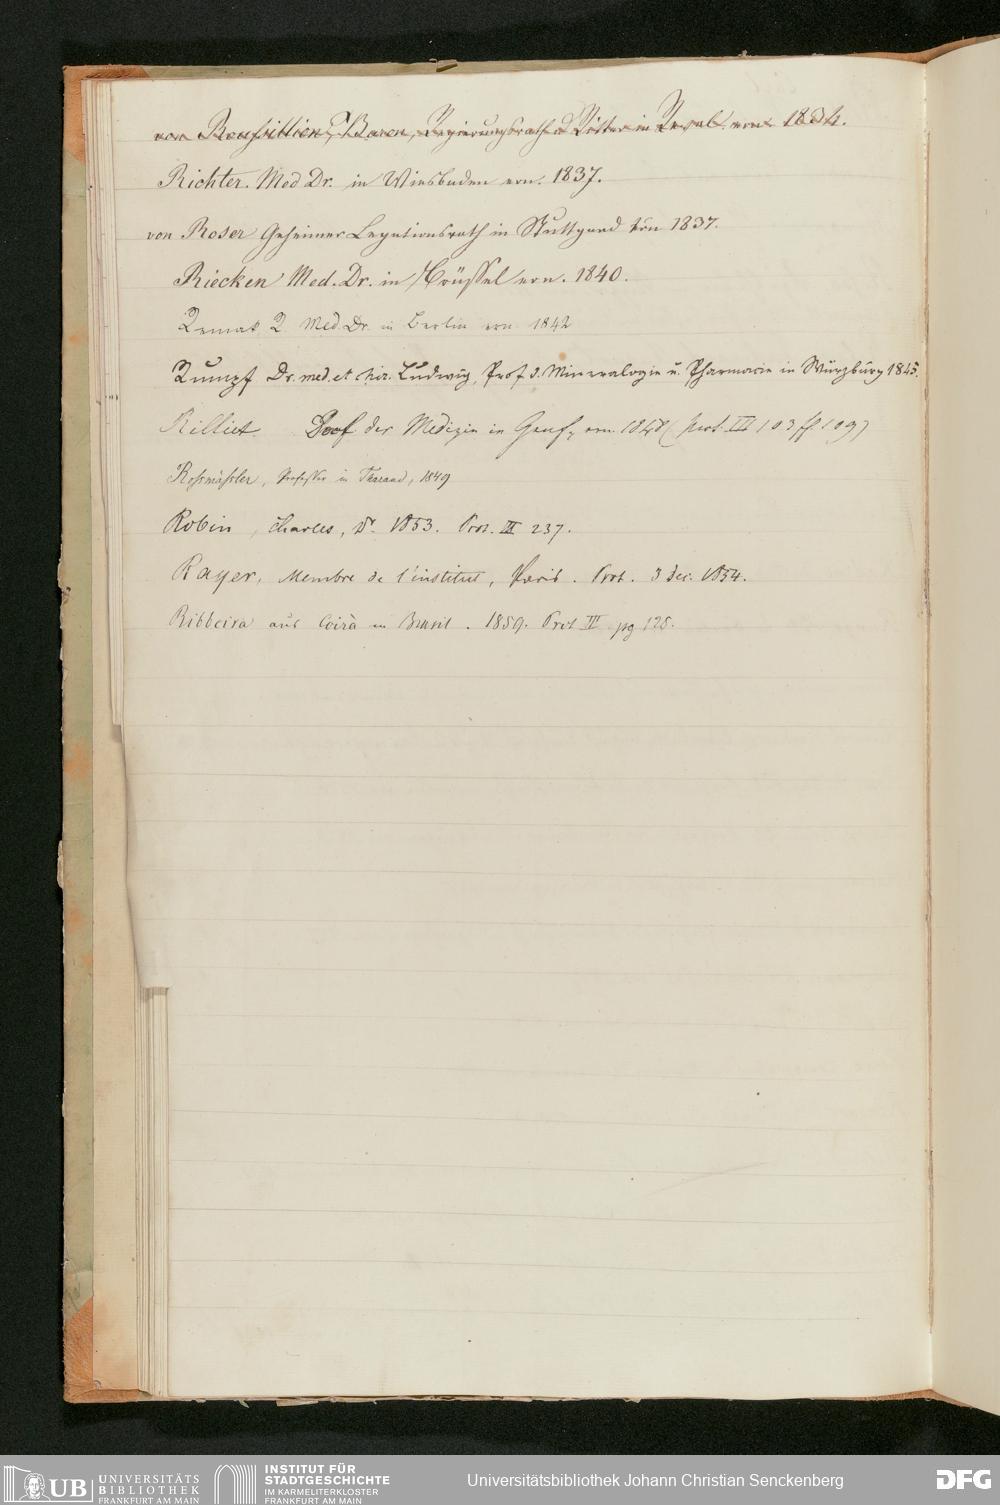 von Roussillion, Baron, Regierungsrath u Ritter in Reval. ern. 1834.
Richter. Med Dr. in Wiesbaden ern. 1837.
von Roser Geheimer Legationsrath in Stuttgard ern 1837.
Riecken Med. Dr. in Brüssel ern. 1840.
Remak R. Med. Dr. in Berlin ern. 1842
Rumpf Dr. med. et chir. Ludwig, Prof. d. Mineralogie u. Pharmacie in Würzburg 1845.
Rilliet Prof der Medizin in Genf, ern. 1848 (Prot. III 103 ff 109)
Rossmässler, Professor in Tharand, 1849
Robin, Charles, Dr. 1853. Prot. III 237.
Rayer, Membre de l'institut, Paris. Prot. 3 Dec. 1854.
Ribbeira aus in Brasil. 1859. Prot IV pg 125.
UB UNIVERSITÄTS
BIBLIOTHEK
FRANKFURT AM MAIN
INSTITUT FÜR
STADTGESCHICHTE
IM KARMELITERKLOSTER
FRANKFURT AM MAIN
Universitätsbibliothek Johann Christian Senckenberg
DFG